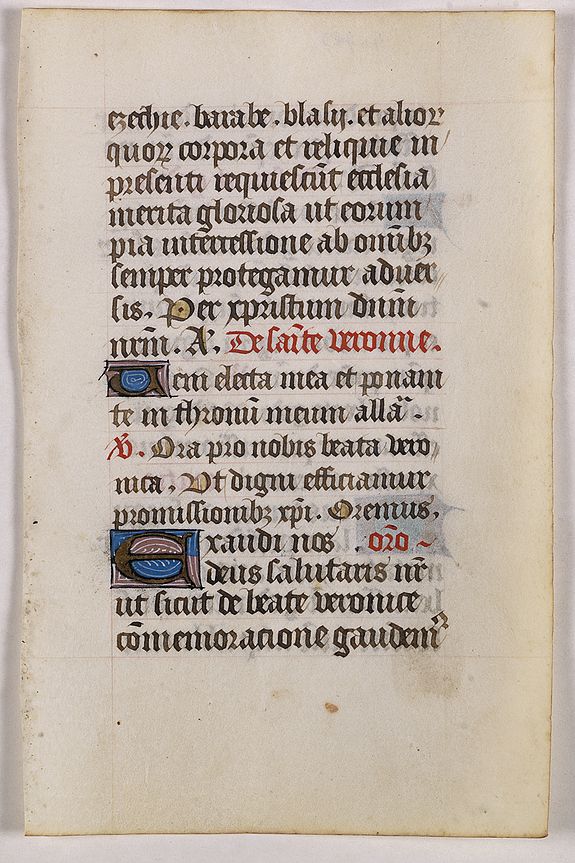 ezechie . barabe . blasij . et alioꝝ
quoꝝ corpora et reliquie in
presenti requiescūt ecclesia
merita gloriosa ut eorum
pia intercessione ab omībꝫ
semper protegamur aduer
sis . Per xpristum dn̄m
nr̄m . A . De sānte veronne .
Veni electa mea et ponam
te in thronū meum alla .
V . Ora pro nobis beata vero
nica . Vt digni efficiamur
promissionibꝫ xp̄i . Oremus .
Exaudi nos . or̄o
deus salutaris nr̄
ut sicut de beate veronice
cōmemoracione gaudemꝰ